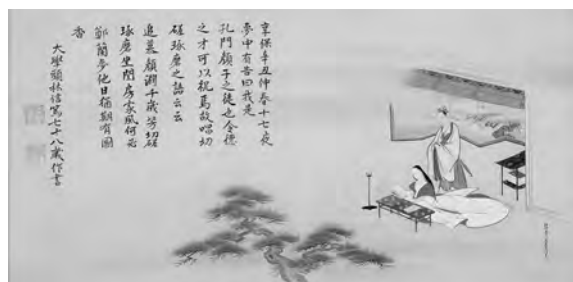 享保辛丑仲春十七夜
夢中有告曰我是
孔門顔子之徒也令德
之才可以祝焉故唱切
磋琢磨之語云云
追慕顔淵千歳芳切磋
琢磨坐閨房家風何羨
鄭蘭夢他日猶期有國
香
大學頭林信篤七十八歳作書